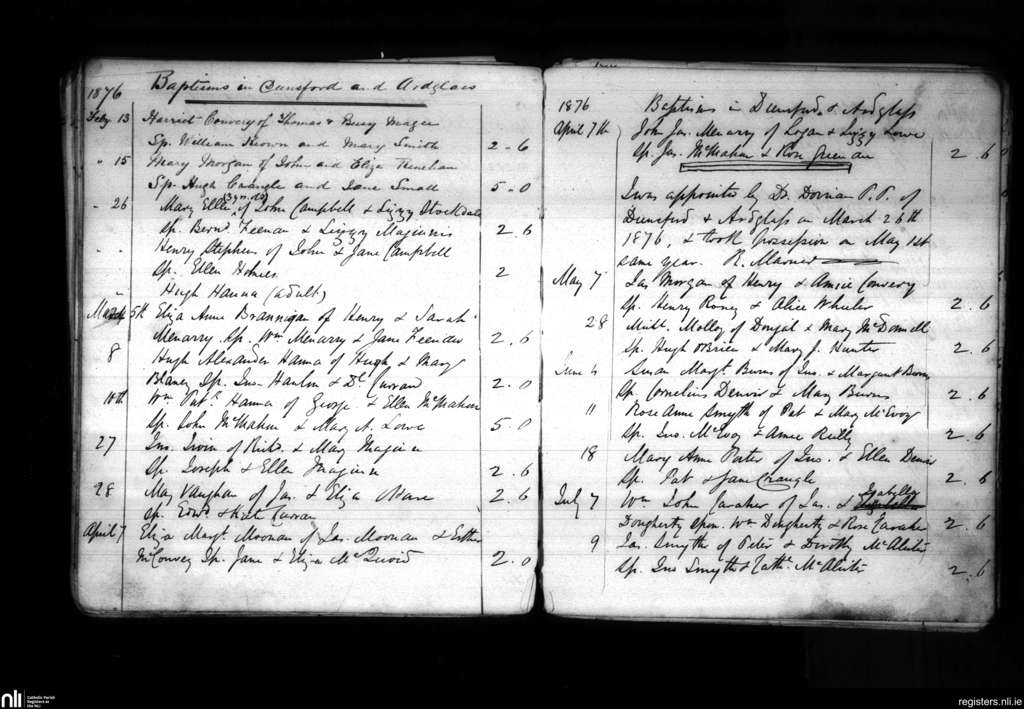 1876 Baptisms in Dunsford and Ardglass
Feby 13 Harriet Convery of Thomas & Magee
Sp. William Keown and Mary Smith 2-6
" 15 Mary Morgan of John and Eliza
Sp. Hugh Crangle and Jane Small 5-0
" 26 Mary Ellen of John Campbell & Lizzy Stockdale
Sp. Bern. Keenan & Lizzy Maginnis 2.6
" Henry Stephen of John & Jane Campbell
Sp. Ellen Holmes 2
" Hugh Hanna (adult)
March 5th Eliza Anne Brannigan of Henry & Sarah
Menarry. Sp. Wm Menarry & Jane Keenan 2.6
8 Hugh Alexander Hanna of Hugh & Mary
Blaney Sp. Jno. Hanlon & Curran 2.0
Wm Patk. Hanna of George & Ellen McMahon
Sp. John McMahon & Mary A. Lowe 5.0
27 Jno. Irvin of & Mary Maginn
Sp. Joseph & Ellen Maginn 2.6
28 May Vaughan of Jas. & Eliza 2.6
Sp. Edwd & Kate Curran
April 7 Eliza Margt. Moonan of Jas. Moonan & Esther
McConvey Sp. Jane & Eliza McQuoid 2.0
1876 Baptisms in Dunsford & Ardglass
April 7th John Jas. Menarry of Logan & Lizzy Lowe
Sp. Jas. McMahon & Rose Greenan 2.6
I was appointed by Dr. Dorrian P.P. of
Dunsford & Ardglass on March 26th
1876, & took possession on May 1st
same year. R. Marner
May 7 Jas Morgan of Henry & Annie Convery
Sp. Henry Roney & Alice Wheeler 2.6
28 Michl. Molloy of Dougal & Mary McDonnell
Sp. Hugh O'Brien & Mary J. Hunter 2.6
June 4 Susan Margt. Burns of Jno. & Margaret Burns
Sp. Cornelius Denvir & Mary Burns 2.6
11 Rose Anne Smyth of Pat & Mary McEvoy
Sp. Jno. McEvoy & Annie Reilly 2.6
18 Mary Anne Porter of Jno. & Ellen Denvir
Sp. Pat & Jane Crangle 2.6
July 7 Wm John Caraher of Jas. & Isabella
Dougherty Spon. Wm Dougherty & Rose Caraher 2.6
9 Jas. Smyth of Peter & Dorothy McAlister
Sp. Jno Smyth & Cathe. McAlister 2.6
nli Catholic Parish
Registers at
the NLI
registers.nli.ie